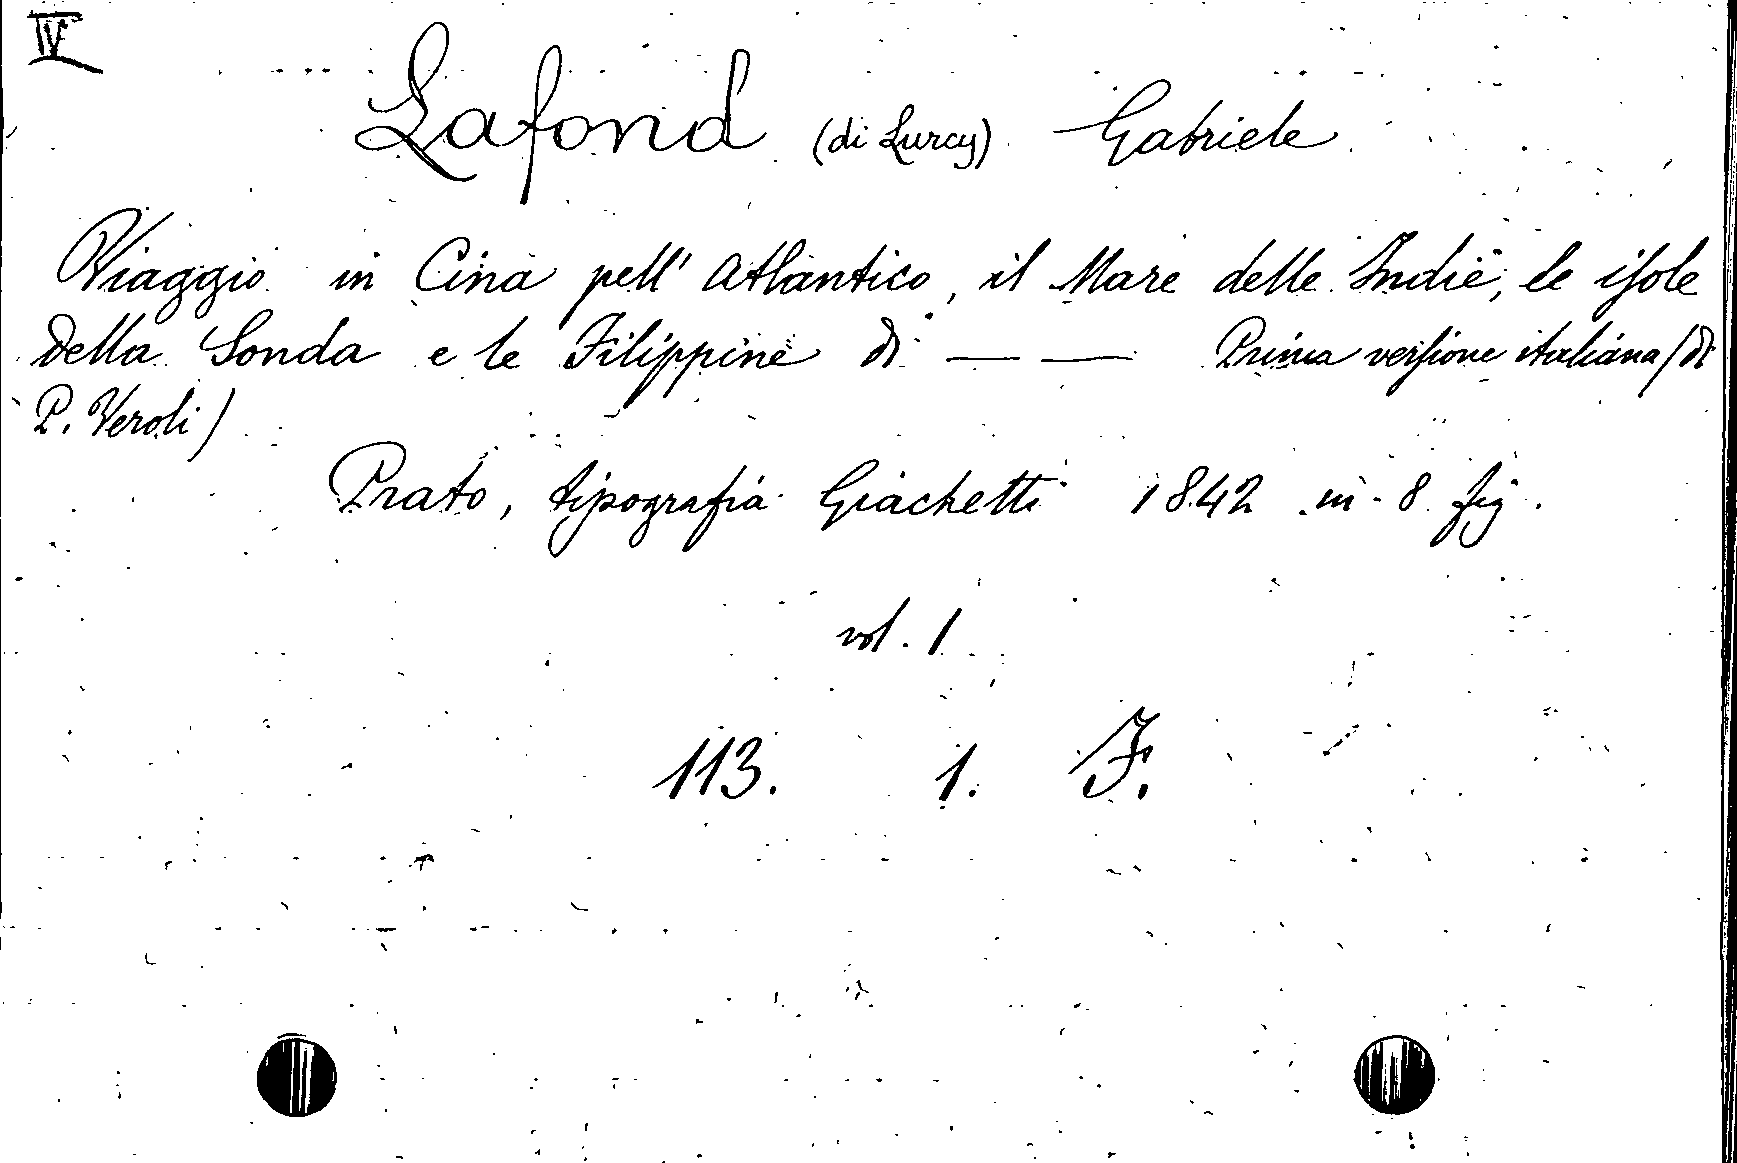 IV
Lafond (di Lurcy) Gabriele
Viaggio in Cina pell' Atlantico, il Mare delle Indie, le isole
della Sonda e le Filippine di — — Prima versione italiana (di
P. Veroli)
Prato, tipografia Giachetti 1842 in-8 fig.
vol. 1
113. 1. F.